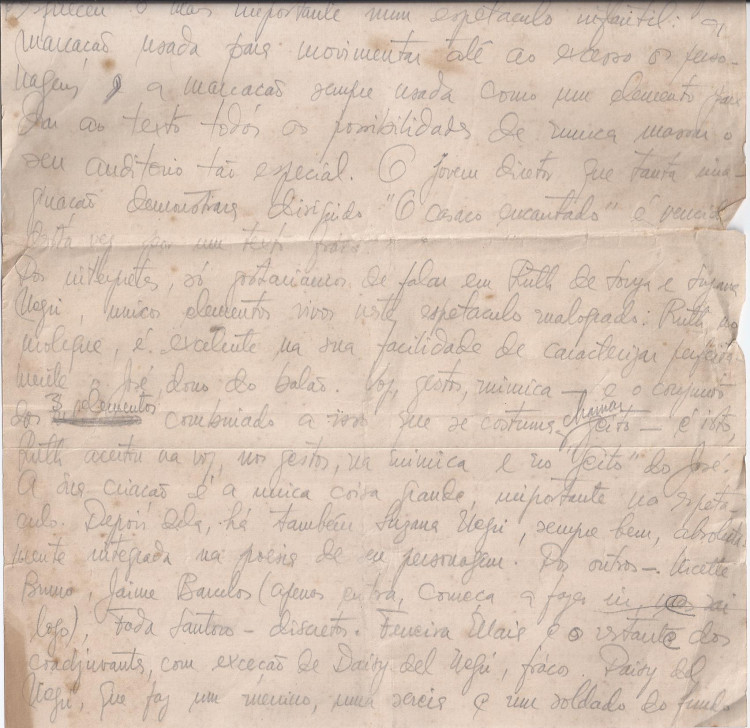 o mais importante num espetaculo infantil: a
marcação usada para movimentar até ao excesso os perso-
nagens, a marcação sempre usada como um elemento para
dar ao texto todas as possibilidades de nunca
seu auditorio tão especial. O jovem diretor que tanta ima-
ginação demonstrara dirigindo "O casaco encantado" é vencido
desta vez por um texto
Dos interpretes, só gostariamos de falar em Ruth de Souza e Suzana
Negri, unicos elementos vivos neste espetaculo malogrado. Ruth, no
moleque, é excelente na sua facilidade de caracterizar perfeita-
mente o José, dono do balão. Voz, gestos, mimica — e o conjunto
dos 3 elementos combinado a isso que se costuma chamar jeito — é isto,
Ruth acertou na voz, nos gestos, na mimica e no "jeito" do José.
A sua criação é a unica coisa grande, importante no espeta-
culo. Depois dela, há também Suzana Negri, sempre bem, absoluta-
mente integrada na poesia de eu personagem. Dos outros — Nicette
Bruno, Jaime Barcelos (apenas entra, começa a fazer rir, sai
logo), Santoro — discretos. Ferreira Maia e o restante dos
coadjuvantes, com exceção de Daisy del Negri, fracos. Daisy del
Negri, que faz um menino, uma sereia e um soldado do fundo